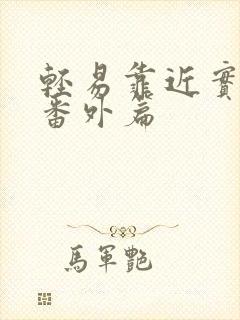 輕易靠近實
番外扁
馬軍艷